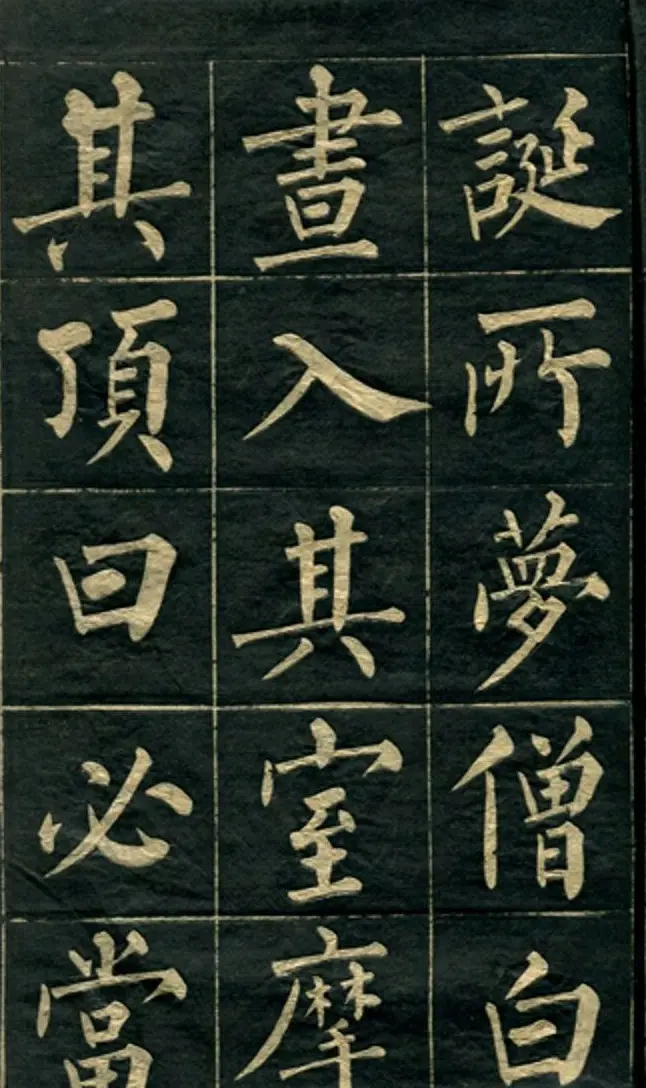 誕所夢僧白
晝入其室摩
其頂曰必當